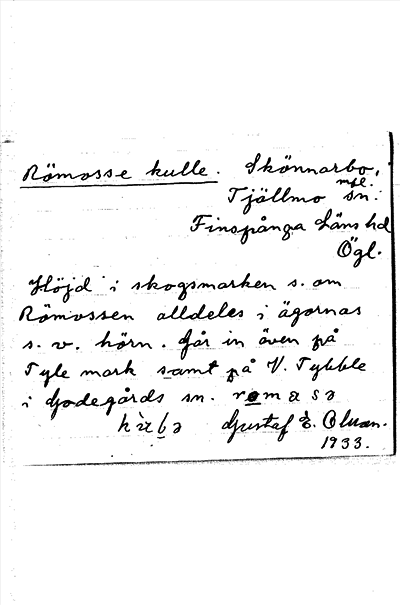 Römosse kulle. Skönnarbo,
mfl.
Tjällmo sn.
Finspånga Läns hd
Ögl.
Höjd i skogsmarken s. om
Römossen alldeles i ägornas
s. v. hörn. Går in även på
Tyle mark samt på V. Tybble
i Godegårds sn.
Gustaf E.
1933.